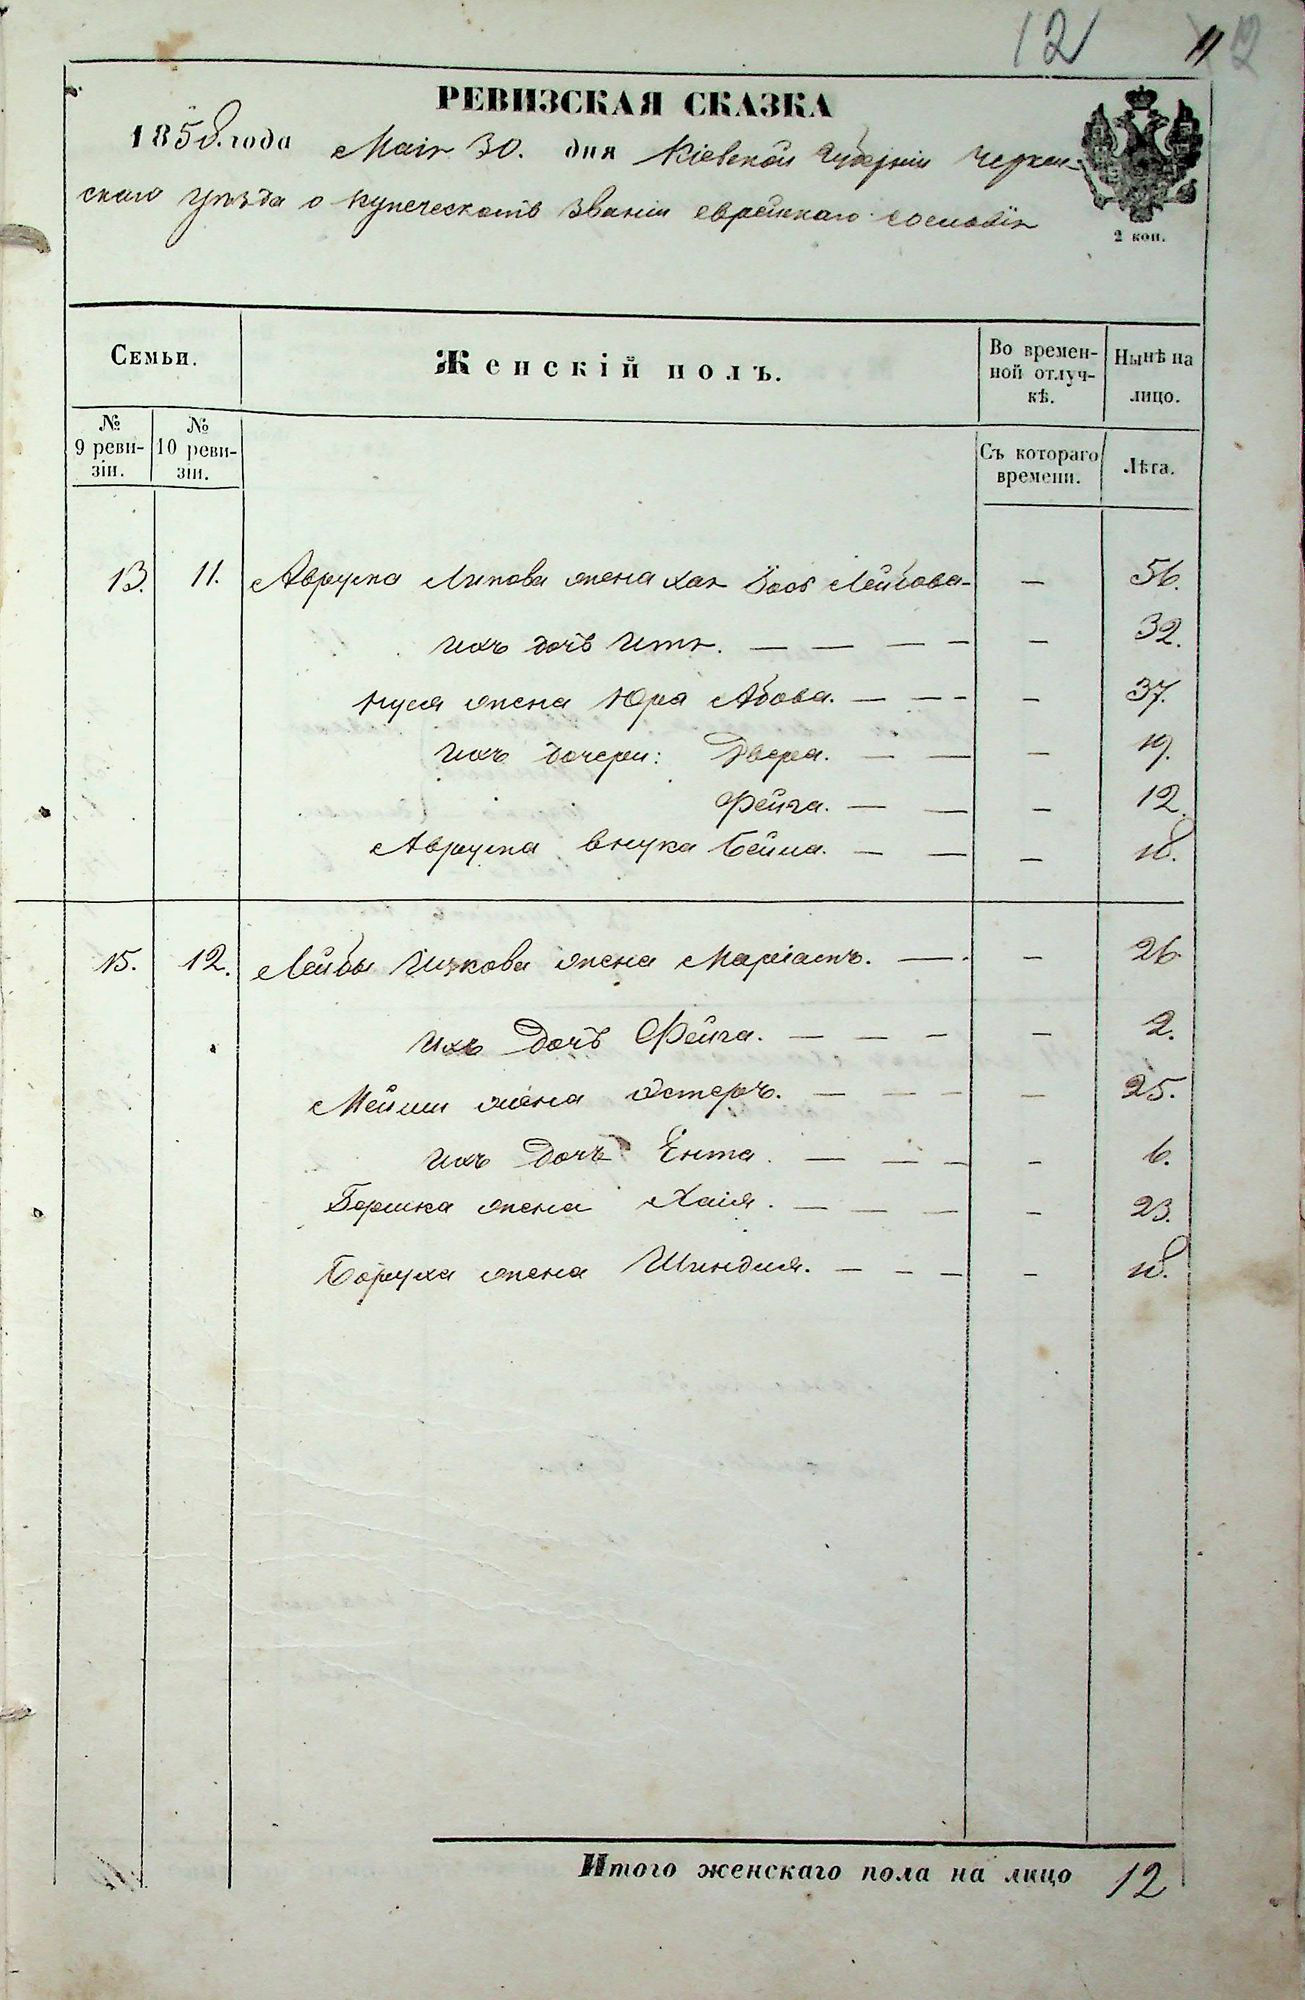 12 11 12
РЕВИЗСКАЯ СКАЗКА
1858 года Мая 30. дня Кіевской Губерніи Черкас-
скаго уѣзда о купеческомъ званіи еврейскаго сословія
2 коп.
Семьи. Женскій полъ. Во времен-ной отлуч-кѣ. Нынѣ на лицо.
№ 9 реви-зіи. № 10 реви-зіи. Съ котораго времени. Лѣта.
13. 11. Аврума Липова жена Хая Лейбова - — 56.
ихъ дочь Итя. — — — — — 32.
Нуся жена Юра Абова. — — - — 37.
ихъ дочери: Двера. — — — 19.
Фейга. — — — 12
Аврума внука Бейла. — — — 18.
15. 12. Лейбы Ицкова жена Маріасъ. — - — 26
ихъ дочь Фейга. — — — — 2.
Мейши жена Эстеръ. — — — — 25.
ихъ дочь Ента. — — — — 6.
Гершка жена Хаія. — — — — 23.
Боруха жена Шиндля. — — — — 18.
Итого женскаго пола на лицо 12